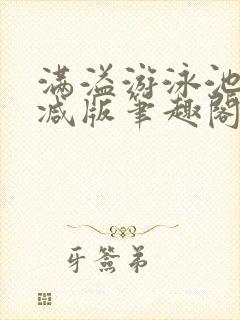 满溢游泳池
减版笔趣閣
牙簽弟